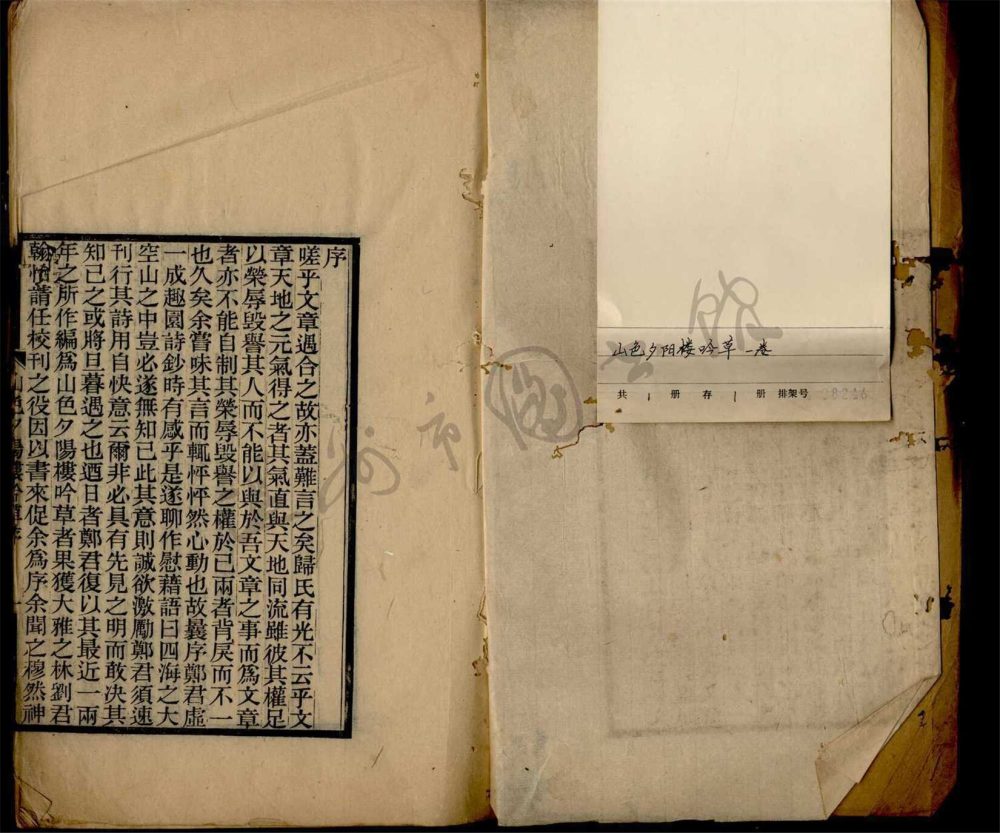 序
嗟乎文章遇合之故亦蓋難言之矣歸氏有光不云乎文
章天地之元氣得之者其氣直與天地同流雖彼其權足
以榮辱毀譽其人而不能以與於吾文章之事而爲文章
者亦不能自制其榮辱毀譽之權於己兩者背戾而不一
也久矣余嘗味其言而輒怦怦然心動也故曩序鄭君虛
一成趣園詩鈔時有感乎是遂聊作慰藉語曰四海之大
空山之中豈必遂無知己此其意則誠欲激勵鄭君須速
刊行其詩用自快意云爾非必具有先見之明而敢決其
知己之或將旦暮遇之也迺日者鄭君復以其最近一兩
年之所作編爲山色夕陽樓吟草者果獲大雅之林劉君
翰愴請任校刊之役因以書來促余爲序余聞之穆然神
山色夕陽樓吟草序
山色夕阳楼吟草 一卷
共 1 册 存 1 册 排架号 08246